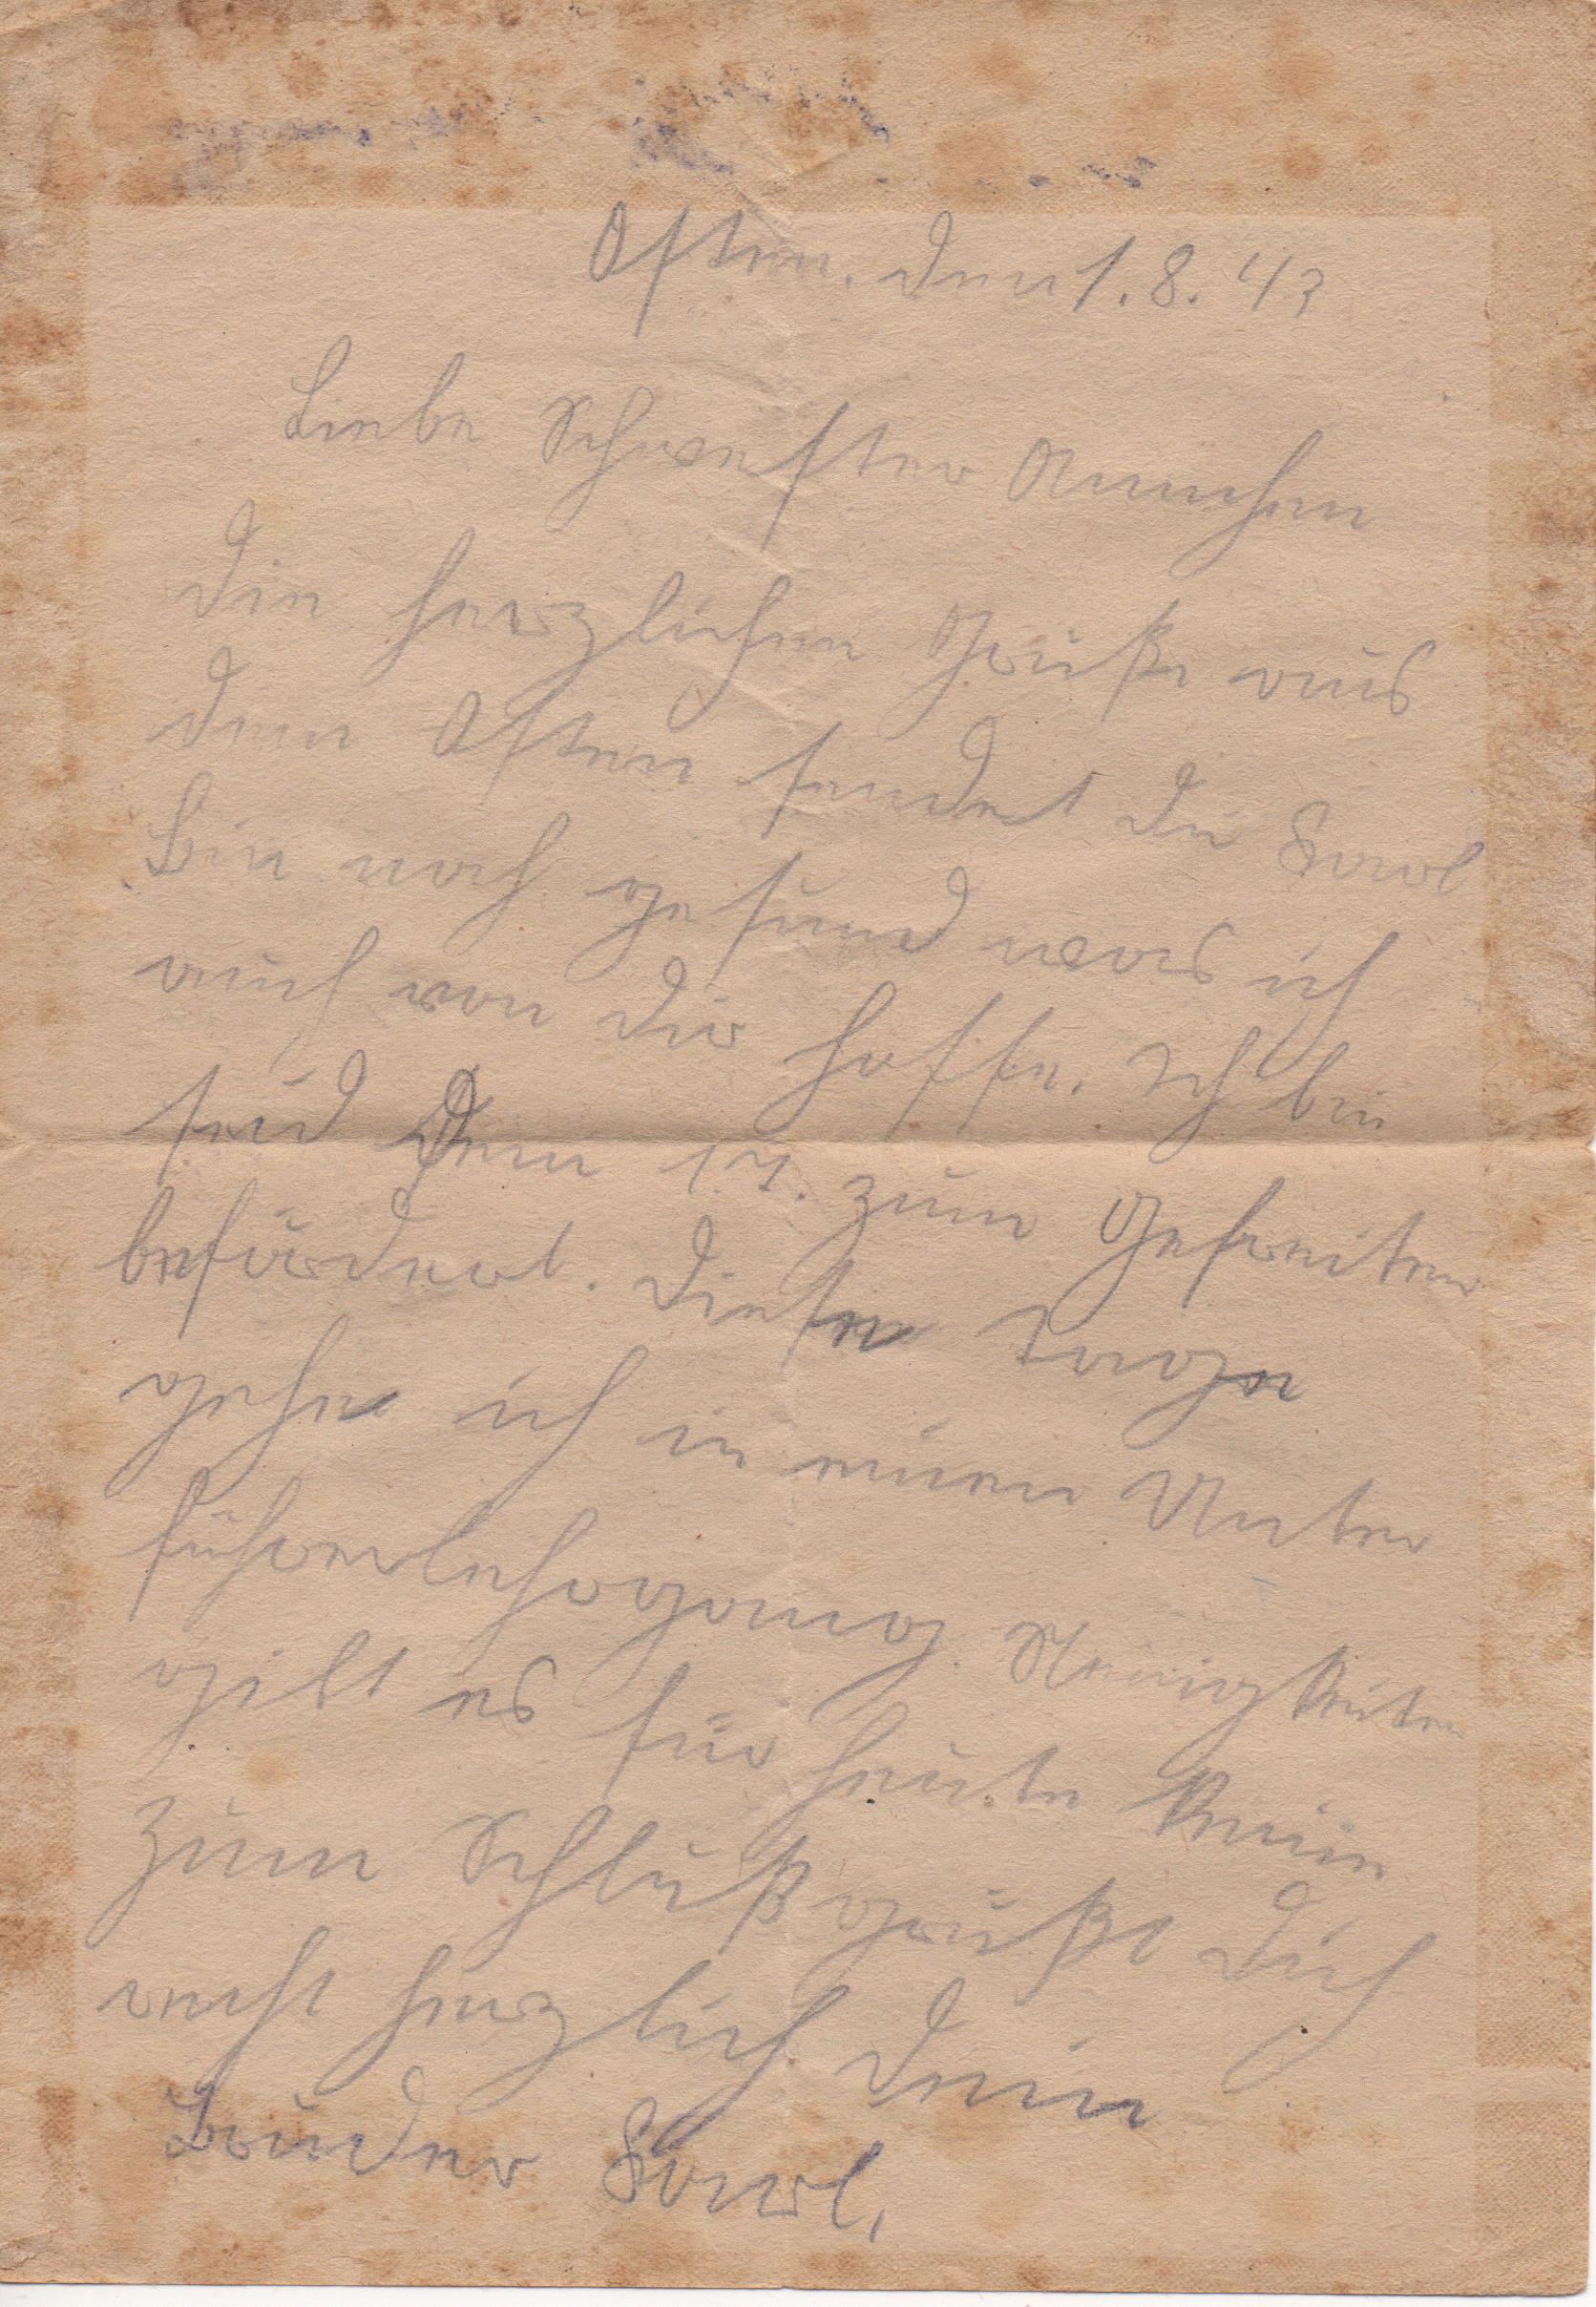 Osten, den 1.8.43
Liebe Schwester Annchen
Die herzlichen Grüße aus
dem Osten sendet dir Karl
Bin noch gesund was ich
auch von dir hoffe. Ich bin
seid dem 1.7. zum Gefreiten
befördert. Diese Tage
gehe ich in einen Unter
führerlehrgang. Neuigkeiten
gibt es für heute keine
zum Schluß grüßt dich
recht herzlich dein
Bruder Karl.